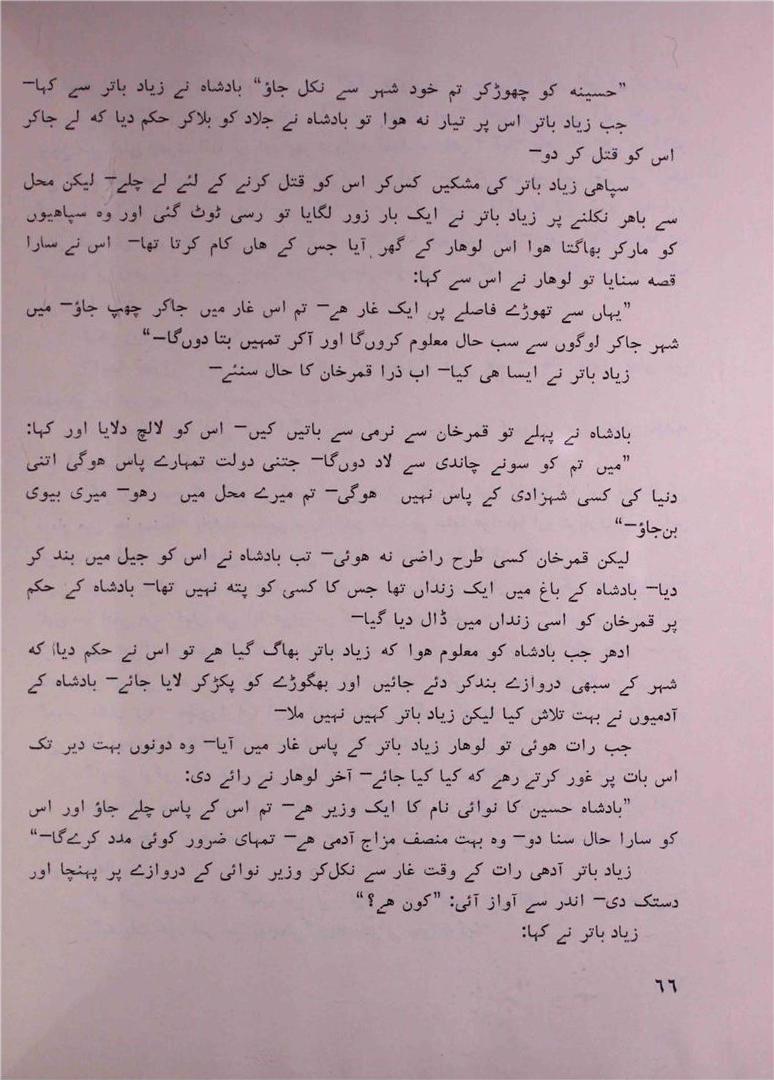 ”حسینه کو چھوڑکر تم خود شہر سے نکل جاؤ“ بادشاہ نے زیاد باتر سے کہا—
جب زیاد باتر اس پر تیار نه ھوا تو بادشاہ نے جلاد کو بلاکر حکم دیا که لے جاکر
اس کو قتل کر دو—
سپاھی زیاد باتر کی مشکیں کس‌کر اس کو قتل کرنے کے لئے لے چلے— لیکن محل
سے باھر نکلنے پر زیاد باتر نے ایک بار زور لگایا تو رسی ٹوٹ گئی اور وہ سپاھیوں
کو مارکر بھاگتا ھوا اس لوھار کے گھر آیا جس کے ھاں کام کرتا تھا— اس نے سارا
قصه سنایا تو لوھار نے اس سے کہا:
”یہاں سے تھوڑے فاصلے پر ایک غار ھے— تم اس غار میں جاکر چھپ جاؤ— میں
شہر جاکر لوگوں سے سب حال معلوم کروں‌گا اور آکر تمہیں بتا دوں‌گا—“
زیاد باتر نے ایسا ھی کیا— اب ذرا قمرخان کا حال سنئے—
بادشاہ نے پہلے تو قمرخان سے نرمی سے باتیں کیں— اس کو لالچ دلایا اور کہا:
”میں تم کو سونے چاندی سے لاد دوں‌گا— جتنی دولت تمہارے پاس ھوگی اتنی
دنیا کی کسی شہزادی کے پاس نہیں ھوگی— تم میرے محل میں رھو— میری بیوی
بن‌جاؤ—“
لیکن قمرخان کسی طرح راضی نه ھوئی— تب بادشاہ نے اس کو جیل میں بند کر
دیا— بادشاہ کے باغ میں ایک زنداں تھا جس کا کسی کو پته نہیں تھا— بادشاہ کے حکم
پر قمرخان کو اسی زنداں میں ڈال دیا گیا—
ادھر جب بادشاہ کو معلوم ھوا که زیاد باتر بھاگ گیا ھے تو اس نے حکم دیا که
شہر کے سبھی دروازے بندکر دئے جائیں اور بھگوڑے کو پکڑکر لایا جائے— بادشاہ کے
آدمیوں نے بہت تلاش کیا لیکن زیاد باتر کہیں نہیں ملا—
جب رات ھوئی تو لوھار زیاد باتر کے پاس غار میں آیا— وہ دونوں بہت دیر تک
اس بات پر غور کرتے رھے که کیا کیا جائے— آخر لوھار نے رائے دی:
”بادشاہ حسین کا نوائی نام کا ایک وزیر ھے— تم اس کے پاس چلے جاؤ اور اس
کو سارا حال سنا دو— وہ بہت منصف مزاج آدمی ھے— تمہای ضرور کوئی مدد کرےگا—“
زیاد باتر آدھی رات کے وقت غار سے نکل‌کر وزیر نوائی کے دروازے پر پہنچا اور
دستک دی— اندر سے آواز آئی: ”کون ھے؟“
زیاد باتر نے کہا:
٦٦